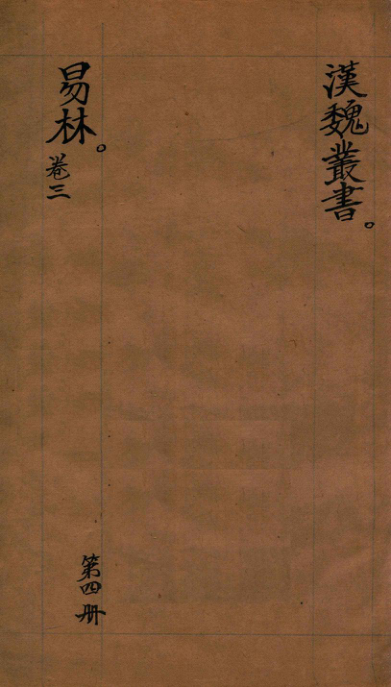 漢魏叢書。
易林。
卷三
第四册